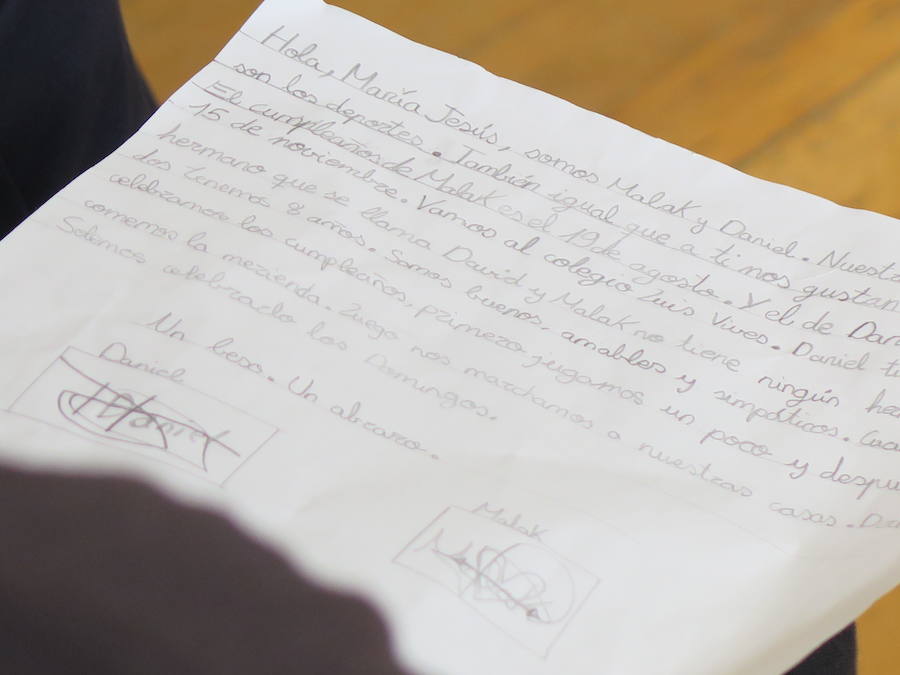 Hola, María Jesús, somos Malak y Daniel. Nuestr
son los deportes. También igual que a ti nos gustan
El cumpleaños de Malak es el 19 de agosto. Y el de Dan
15 de noviembre. Vamos al colegio Luis Vives. Daniel ti
hermano que se llama David y Malak no tiene ningún her
dos tenemos 8 años. Somos buenos, amables y simpáticos. Cua
celebramos los cumpleaños, primero jugamos un poco y despu
comemos la merienda. Luego nos marchamos a nuestras casas. Da
Solemos celebrarlo los Domingos.
Un beso. Un abrazo.
Daniel
Daniel
Malak